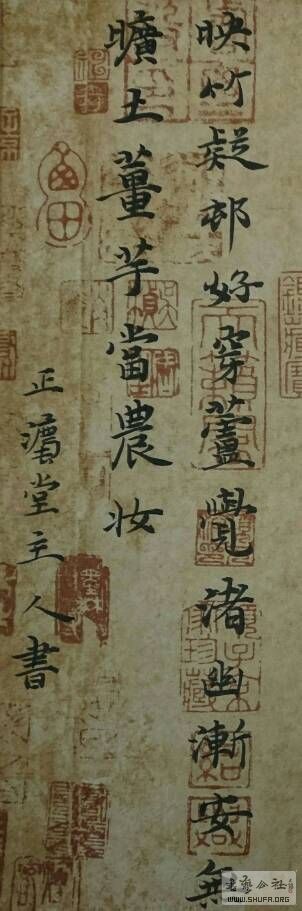 映竹疑邨好穿蘆覺渚幽漸安無
曠土薑芋當農妝
正堂主人書
书艺公社
WWW.SHUFA.ORG